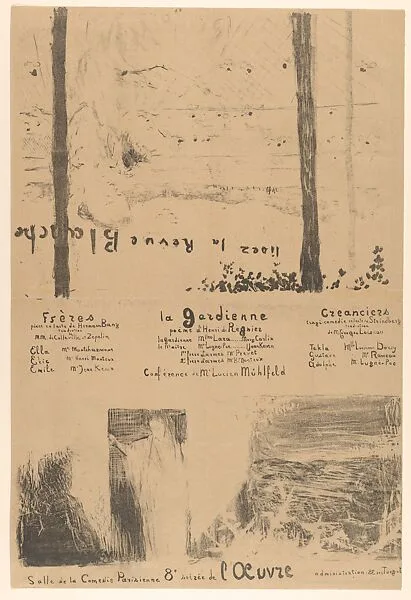 lisez la Revue Blanche
Frères
pièce en 1 acte de Herman Bang
traduction
MM. de Colleville et Zepelin
Ella
Elic Mr Henri Mosteux
Emile Mr Jean Kemm
la Gardienne
poème d'Henri de Régnier
la Gardienne Mlles Lara Suzy Carlin
le Maître Mr Lugné-Poe
1er frère d'armes Mr Prévot
2e frère d'armes
Conférence de Mr Lucien Mühlfeld
Creanciers
tragi-comédie de Strindberg
traduction
de Mr Georges Loiseau
Tekla Mlle Lucienne Dorcy
Gustave Mr Rameau
Adolphe M. Lugné-Poe
Salle de la Comedie Parisienne 8e soirée de l'Œuvre administration 22 rue Turgot